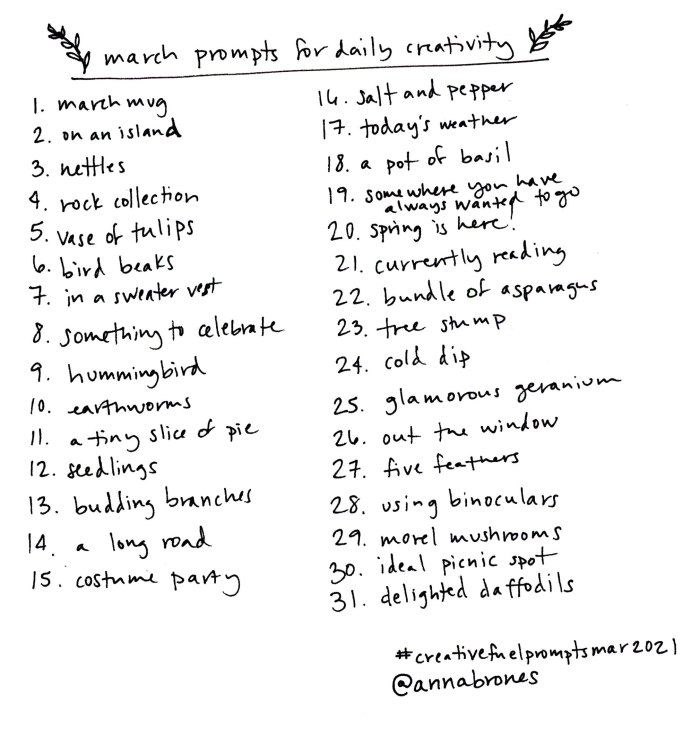 march prompts for daily creativity
1. march mug
2. on an island
3. nettles
4. rock collection
5. vase of tulips
6. bird beaks
7. in a sweater vest
8. something to celebrate
9. hummingbird
10. earthworms
11. a tiny slice of pie
12. seedlings
13. budding branches
14. a long road
15. costume party
16. salt and pepper
17. today's weather
18. a pot of basil
19. somewhere you have
always wanted to go
20. spring is here!
21. currently reading
22. bundle of asparagus
23. tree stump
24. cold dip
25. glamorous geranium
26. out the window
27. five feathers
28. using binoculars
29. morel mushrooms
30. ideal picnic spot
31. delighted daffodils
#creativefuelpromptsmar2021
@annabrones